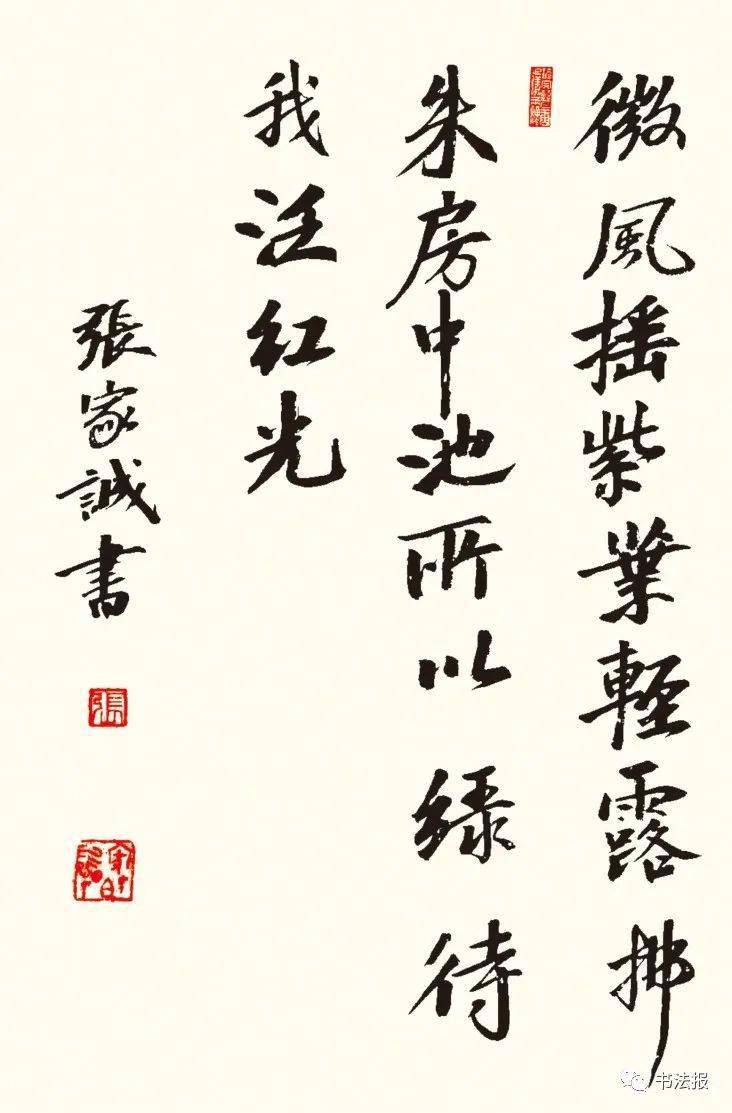 微風摇紫葉輕露拂
朱房中池所以緑待
我泛紅光
張家誠書
張
书法报